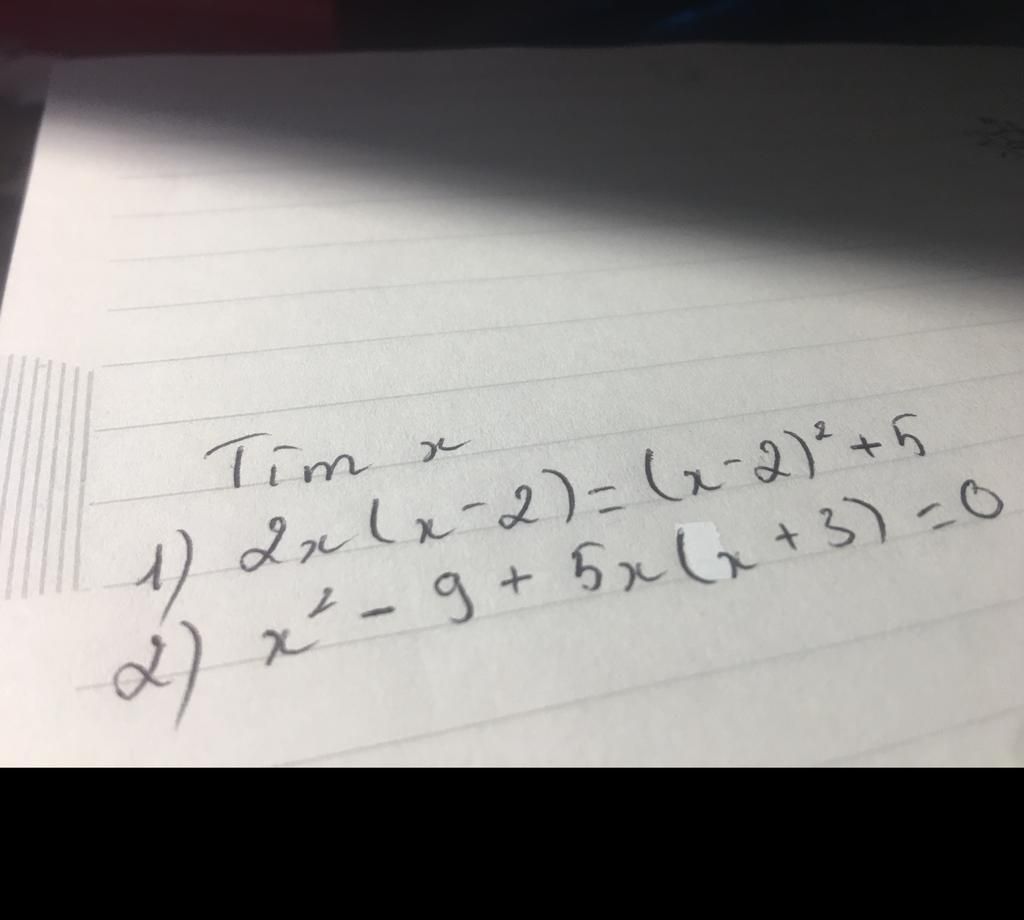 Tìm x
1) 2x(x-2)=(x-2)²+5
2) x² - 9 + 5x(x+3) = 0